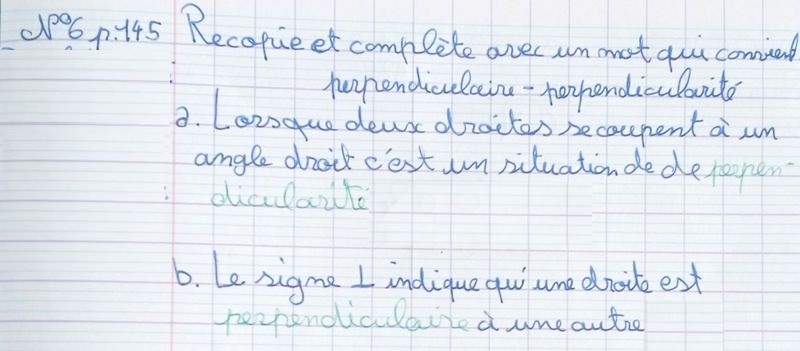 N°6 p.145 Recopie et complète avec un mot qui convient
perpendiculaire - perpendicularité
a. Lorsque deux droites se coupent à un
angle droit c'est un situation de de perpen-
dicularité
b. Le signe ⊥ indique qu'une droite est
perpendiculaire à une autre